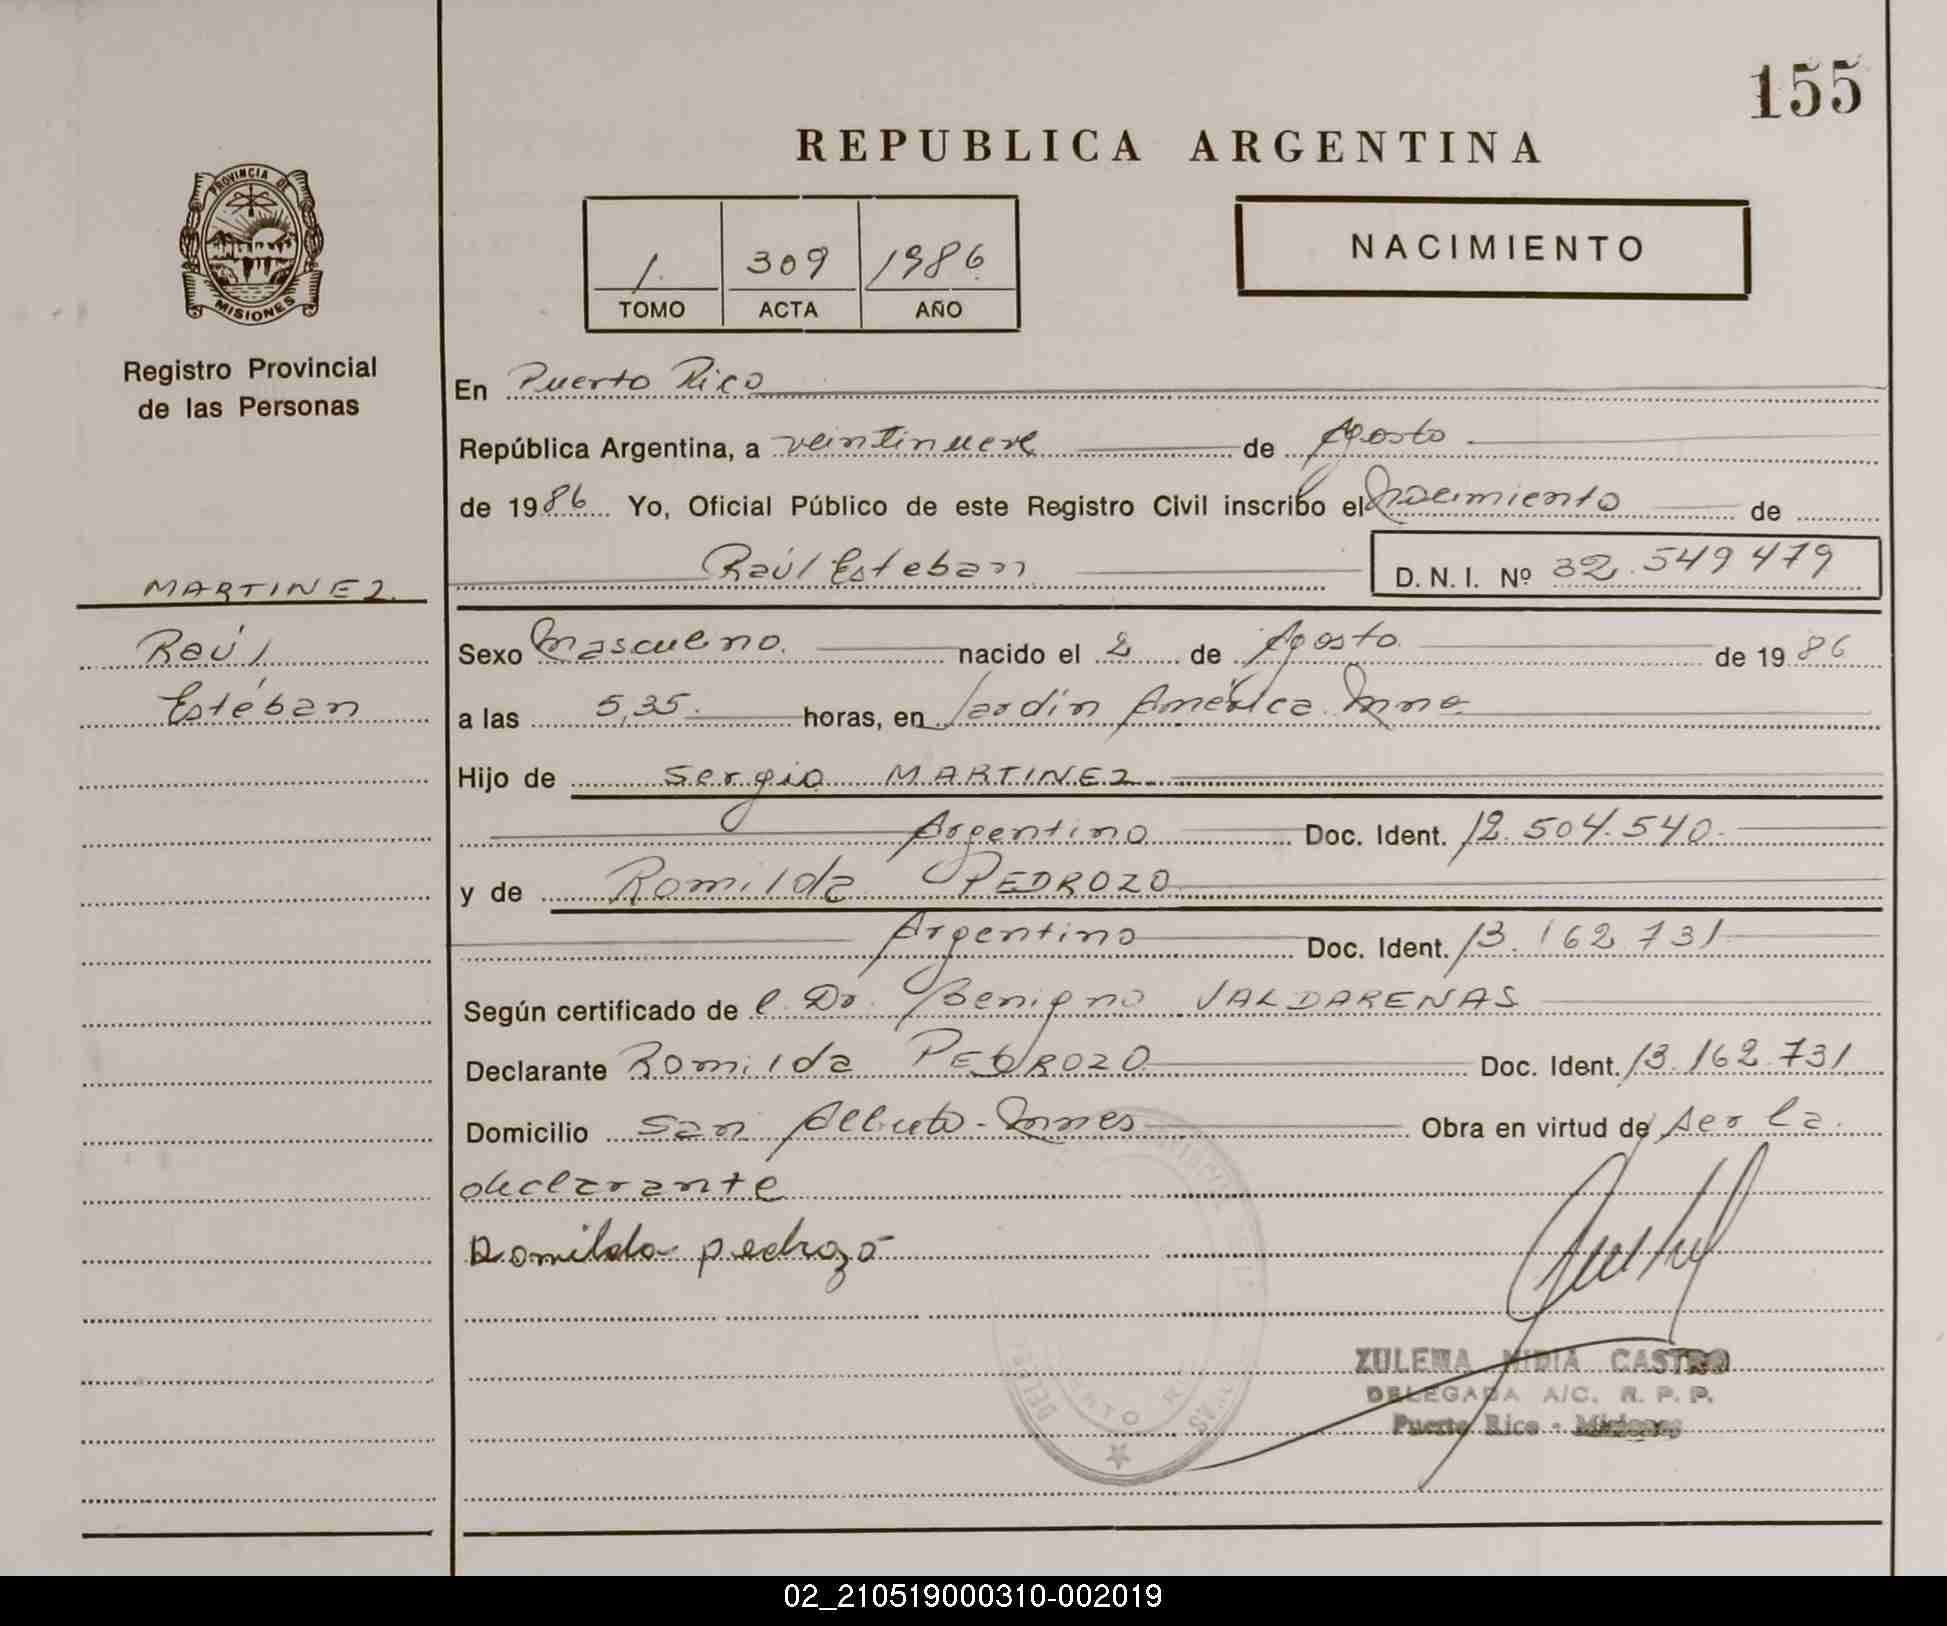 155
REPUBLICA ARGENTINA
PROVINCIA DE
MISIONES
Registro Provincial
de las Personas
1 309 1986
TOMO ACTA AÑO
NACIMIENTO
En Puerto Rico
República Argentina, a veintinueve de Agosto
de 1986 Yo, Oficial Público de este Registro Civil inscribo el Nacimiento de
Raúl Esteban D. N. I. Nº 32.549479
MARTINEZ
Raúl
Estéban
Sexo Masculino. nacido el 2 de Agosto de 1986
a las 5,35. horas, en Jardín América Mnes
Hijo de Sergio MARTINEZ
Argentino Doc. Ident. 12.504.540.
y de Romilda PEDROZO
Argentino Doc. Ident. 13.162.731
Según certificado de l. Dr. Benigno VALDARENAS
Declarante Romilda PEDROZO Doc. Ident. 13.162.731
Domicilio San Alberto - Mnes Obra en virtud de ser la
declarante
Romilda pedrozo
ZULEMA NIDIA CASTRO
DELEGADA A/C. R. P. P.
Puerto Rico - Misiones
02_210519000310-002019